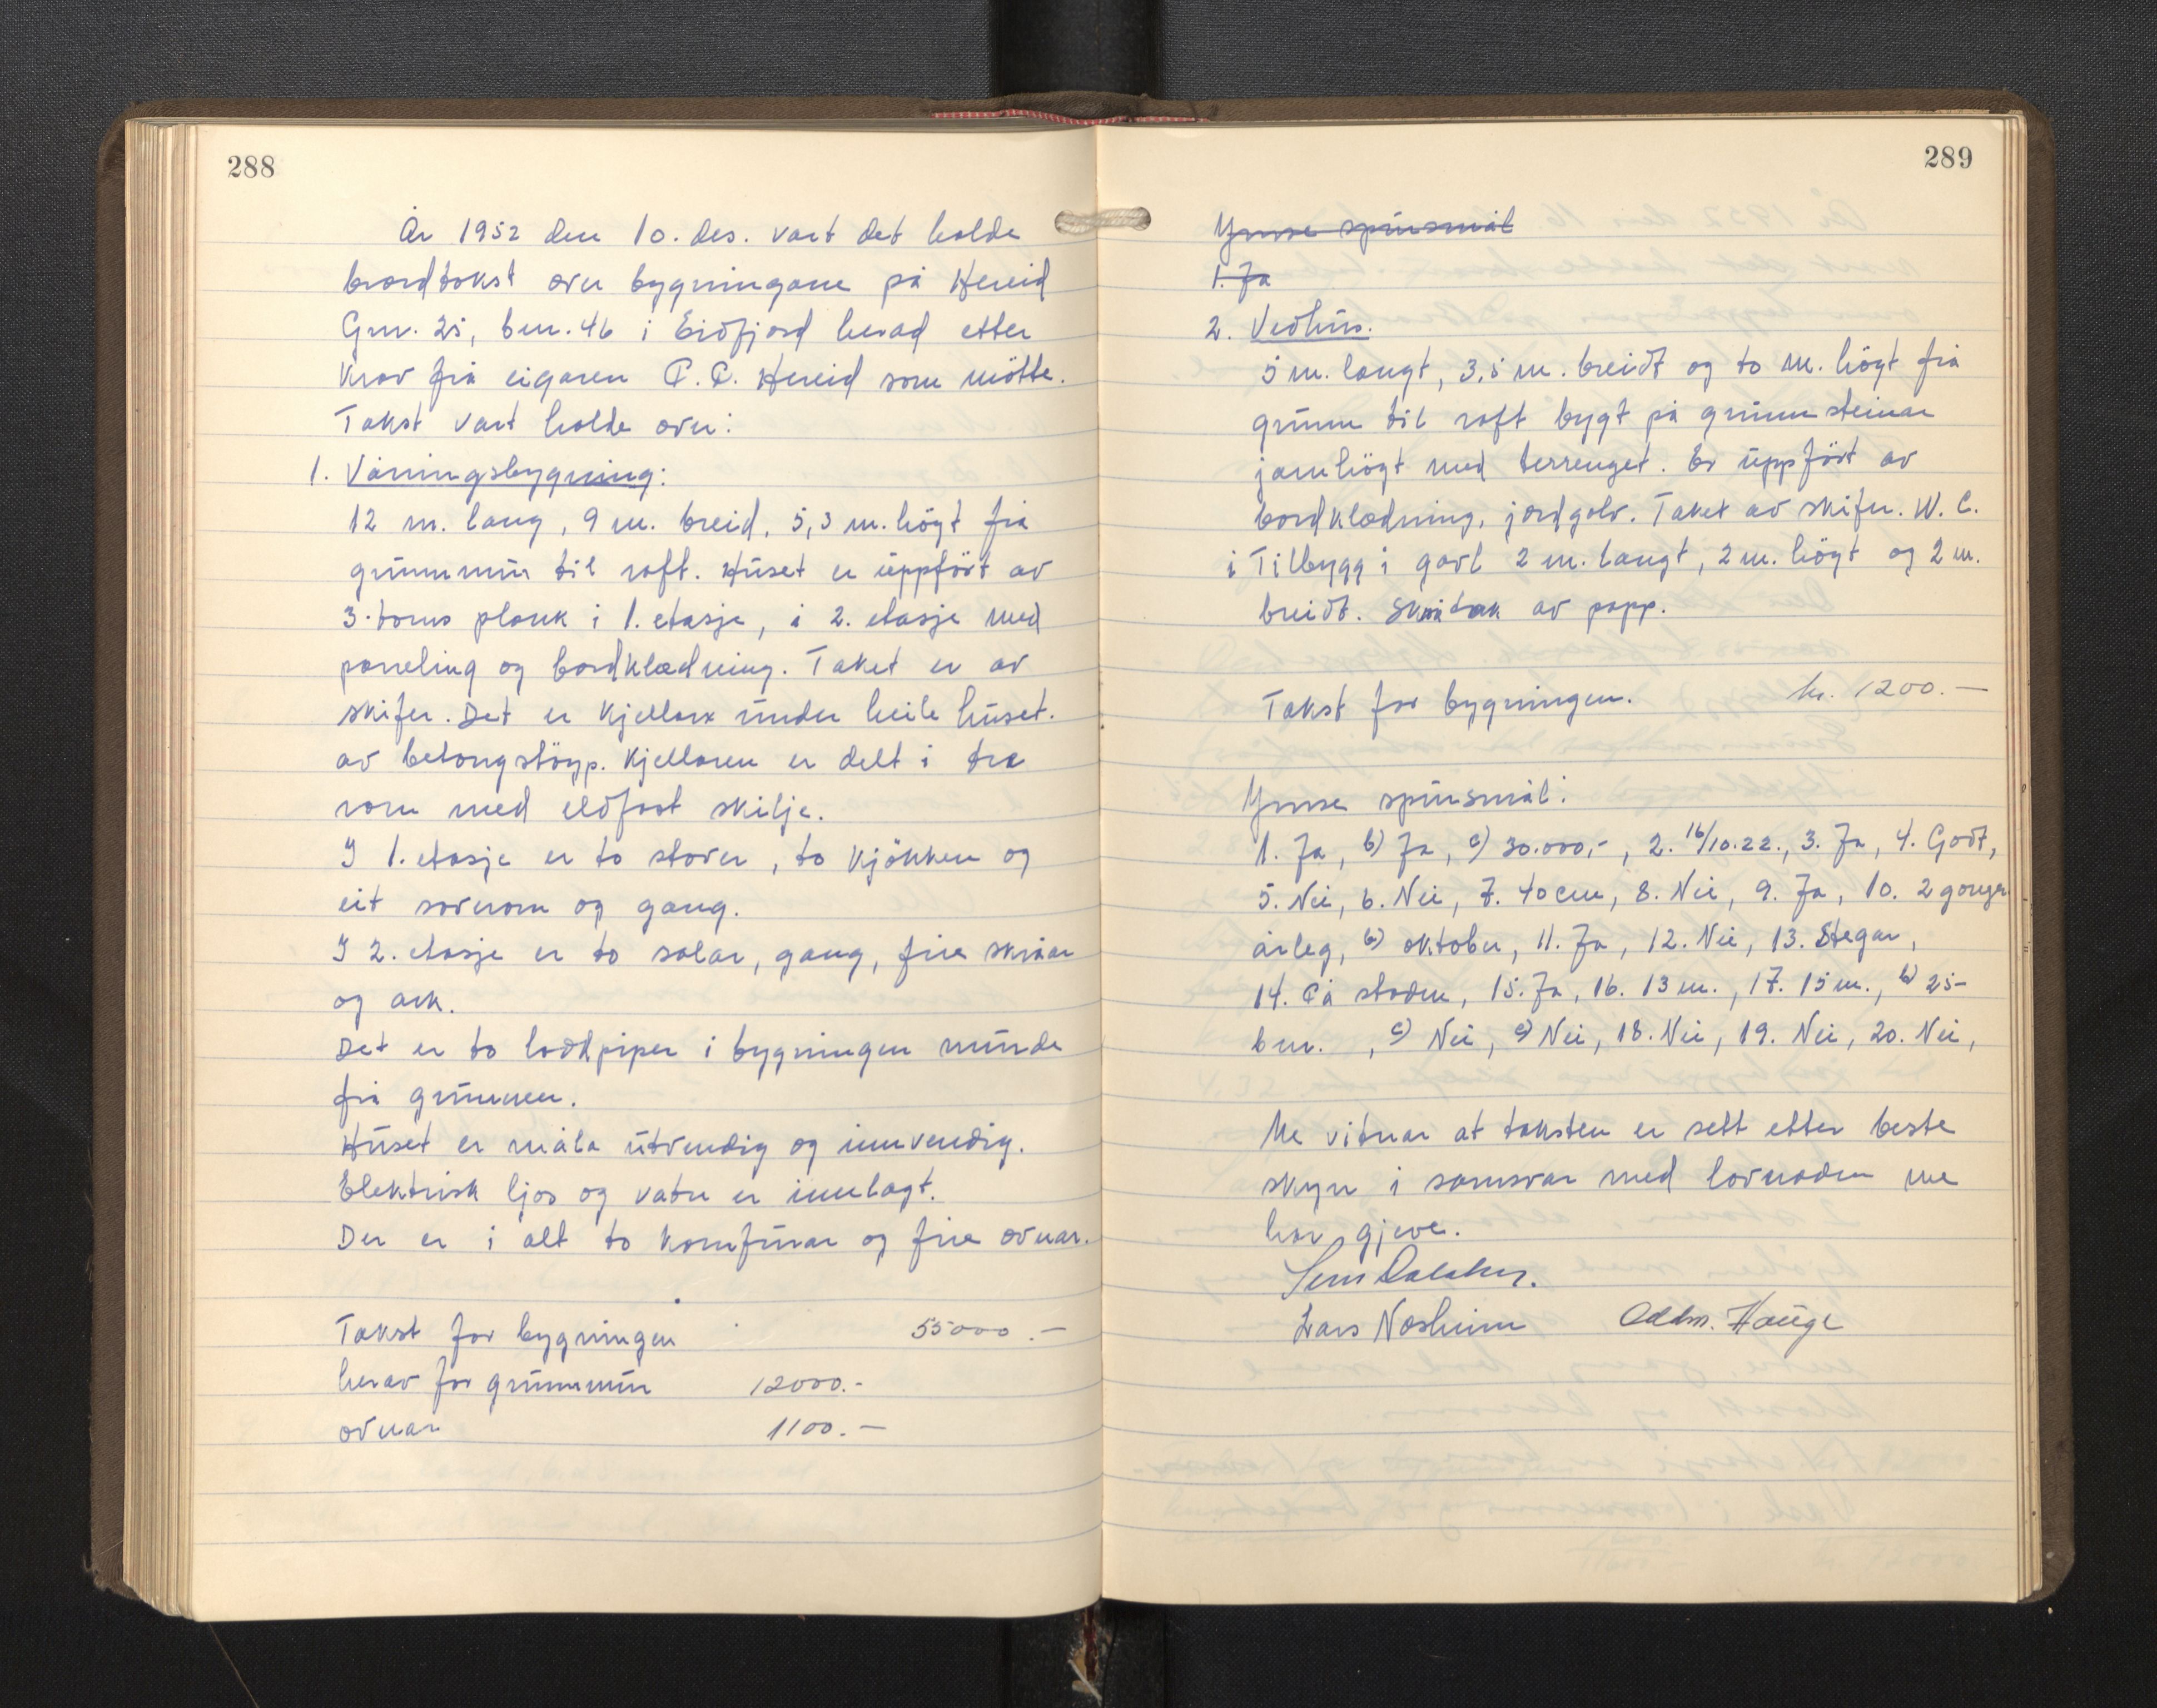 288
År 1952 den 10. des. vart det halde
brandtakst over bygningane på Hereid
Gnr. 25, bnr. 46 i Eidfjord herad etter
krav frå eigaren P. P. Hereid som møtte.
Takst vart halde over:
1. Våningsbygning:
12 m. lang, 9 m. breid, 5,3 m. högt frå
grunnmur til raft. Huset er uppfört av
3. toms plank i 1. etasje, i 2. etasje med
paneling og bordklædning. Taket er av
skifer. Det er kjellar under heile huset.
av betongstöyp. Kjellaren er delt i tre
rom med eldfast skilje.
I 1. etasje er to stover, to kjökken og
eit soverom og gang.
I 2. etasje er to salar, gang, fire skråar
og ark.
Det er to loddpiper i bygningen murde
frå grunnen.
Huset er måla utvendig og innvendig.
Elektrisk ljos og vatn er innlagt.
Der er i alt to komfurar og fire ovnar.
Takst for bygningen 55000.-
herav for grunnmur 12000.-
ovnar 1100.-
289
Ymse spursmål
1. Ja
2. Vedhus.
5 m. langt, 3,5 m. breidt og to m. högt frå
grunn til raft bygt på grunnsteinar
jamhögt med terrenget. Er uppfört av
bordklædning, jordgolv. Taket av skifer. W. C.
i Tilbygg i gavl 2 m. langt, 2 m. högt og 2 m.
breidt. Skråtak av papp.
Takst for bygningen. kr. 1200.-
Ymse spursmål:
1. Ja, b) Ja, c) 30.000,-, 2. 16/10.22., 3. Ja, 4. Godt,
5. Nei, 6. Nei, 7. 40 cm, 8. Nei, 9. Ja, 10. 2 gonger
årleg, b) oktober, 11. Ja, 12. Nei, 13. Stegar,
14. På staden, 15. Ja, 16. 13 m., 17. 15 m., b) 25-
bnr. , c) Nei, e) Nei, 18. Nei, 19. Nei, 20. Nei,
Me vitnar at taksten er sett etter beste
skyn i samsvar med lovnaden me
har gjeve.
Lars Næsheim Oddm. Hauge